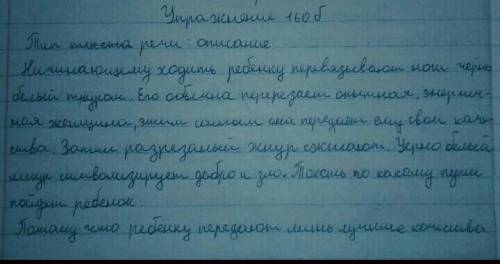 Упражнение 160.б
Тип текста речи: описание
Начинающему ходить ребенку перевязывают ноги черно
белый шнуром. Его обычна перерезает опытная, энергич-
ная женщина, этим самым она передает ему свои каче-
ства. Затем разрезаный шнур сжигают. Черно белый
шнур символизирует добро и зло. Тоесть по какому пути
пойдет ребенок.
Потому что ребенку передают лишь лучшие качества